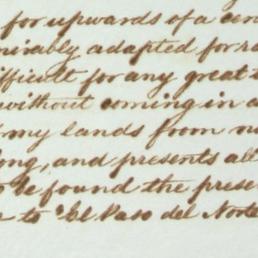 for upwards of a cen
mirably adapted for ra
ifficult for any great
without coming in a
my lands from n
long, and presents all
o be found the prese
to El Paso del Norte